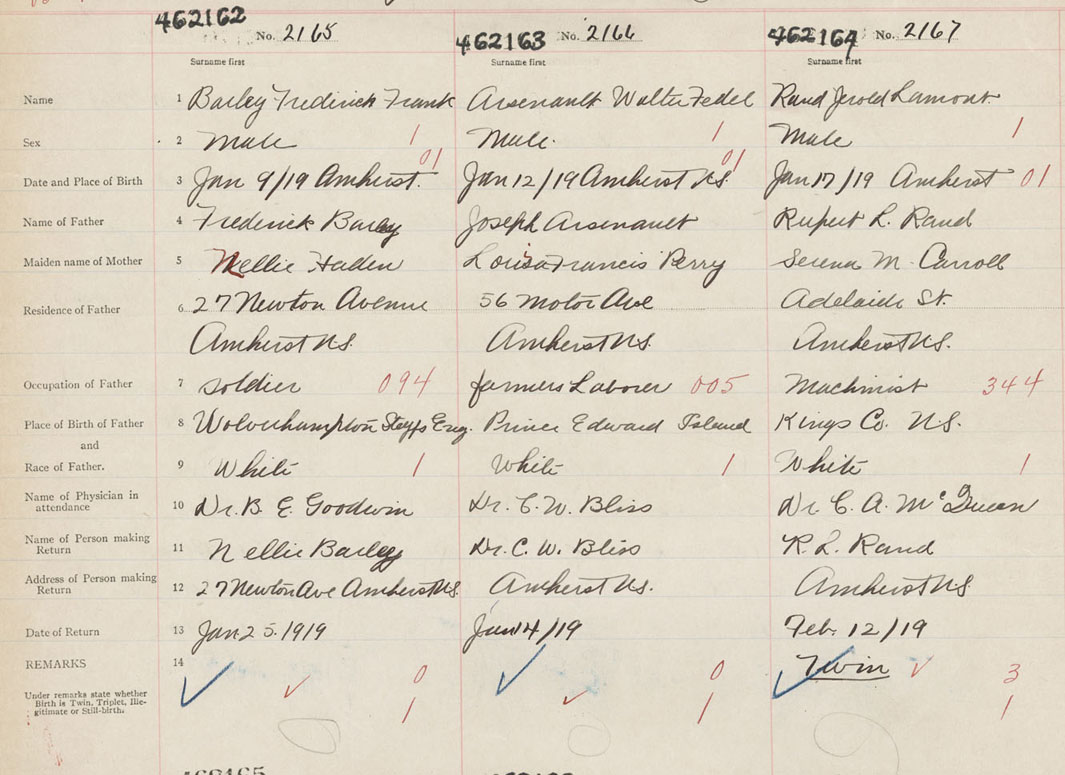 462162 No. 2165 462163 No. 2166 462164 No. 2167
Surname first Surname first Surname first
Name 1 Barley Frederick Frank Arsenault Walter Fedel Rand Jerold Lamont
Sex 2 Male 1 Male. 1 Male 1
Date and Place of Birth 3 Jan 9/19 Amherst. 01 Jan 12/19 Amherst N.S. 01 Jan 17/19 Amherst 01
Name of Father 4 Frederick Barley Joseph Arsenault Rupert L. Rand
Maiden name of Mother 5 Nellie Haden Louisa Francis Perry Serena M. Carroll
Residence of Father 6 27 Newton Avenue 56 Motor Ave Adelaide St.
Amherst N.S. Amherst N.S. Amherst N.S.
Occupation of Father 7 soldier 094 farmers Laborer 005 Machinist 344
Place of Birth of Father 8 Wolverhampton Eng. Prince Edward Island Kings Co. N.S.
and
Race of Father. 9 White 1 White 1 White 1
Name of Physician in attendance 10 Dr. B. E. Goodwin Dr. C. W. Bliss Dr. C. A. McQueen
Name of Person making Return 11 Nellie Barley Dr. C. W. Bliss R. L. Rand
Address of Person making Return 12 27 Newton Ave Amherst N.S. Amherst N.S. Amherst N.S.
Date of Return 13 Jan 25. 1919 14/19 Feb. 12/19
REMARKS 14 0 0 Twin 3
Under remarks state whether
Birth is Twin, Triplet, Ille-
gitimate or Still-birth. 1 1 1